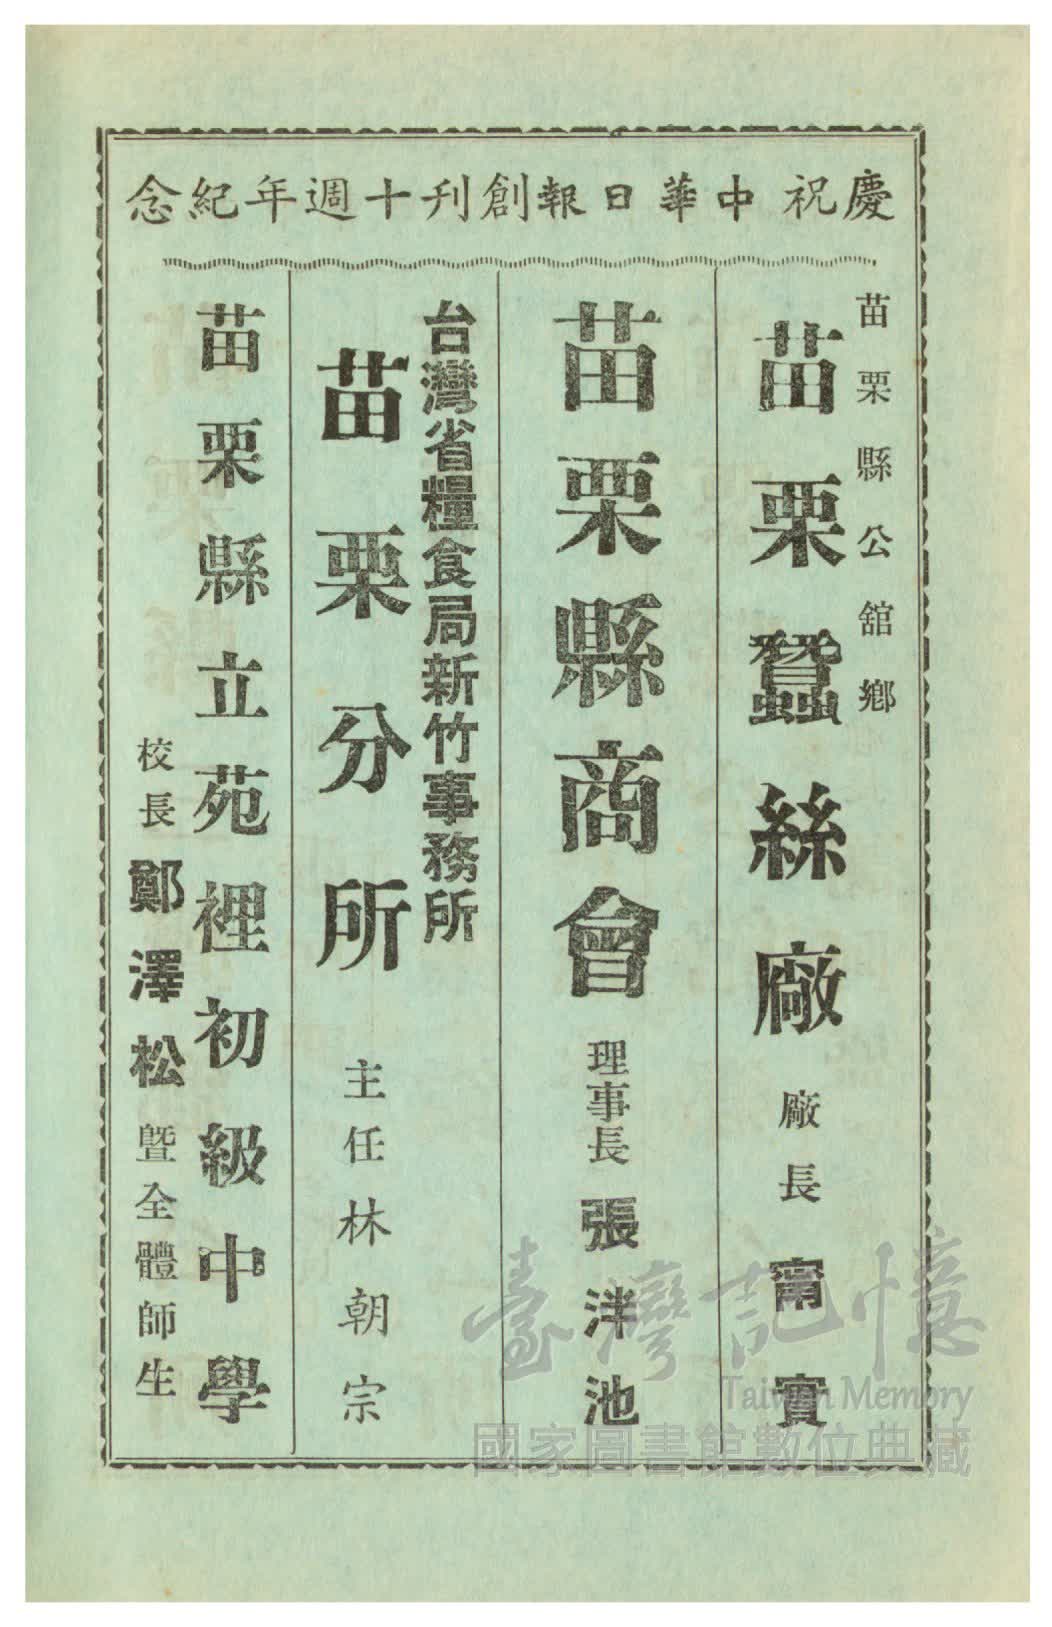 慶祝中華日報創刊十週年紀念
苗栗縣公舘鄉
苗栗蠶絲廠 廠長 甯實
苗栗縣商會 理事長 張泮池
台灣省糧食局新竹事務所
苗栗分所 主任 林朝宗
苗栗縣立苑裡初級中學
校長 鄭澤松 暨全體師生
臺灣記憶
Taiwan Memory
國家圖書館數位典藏